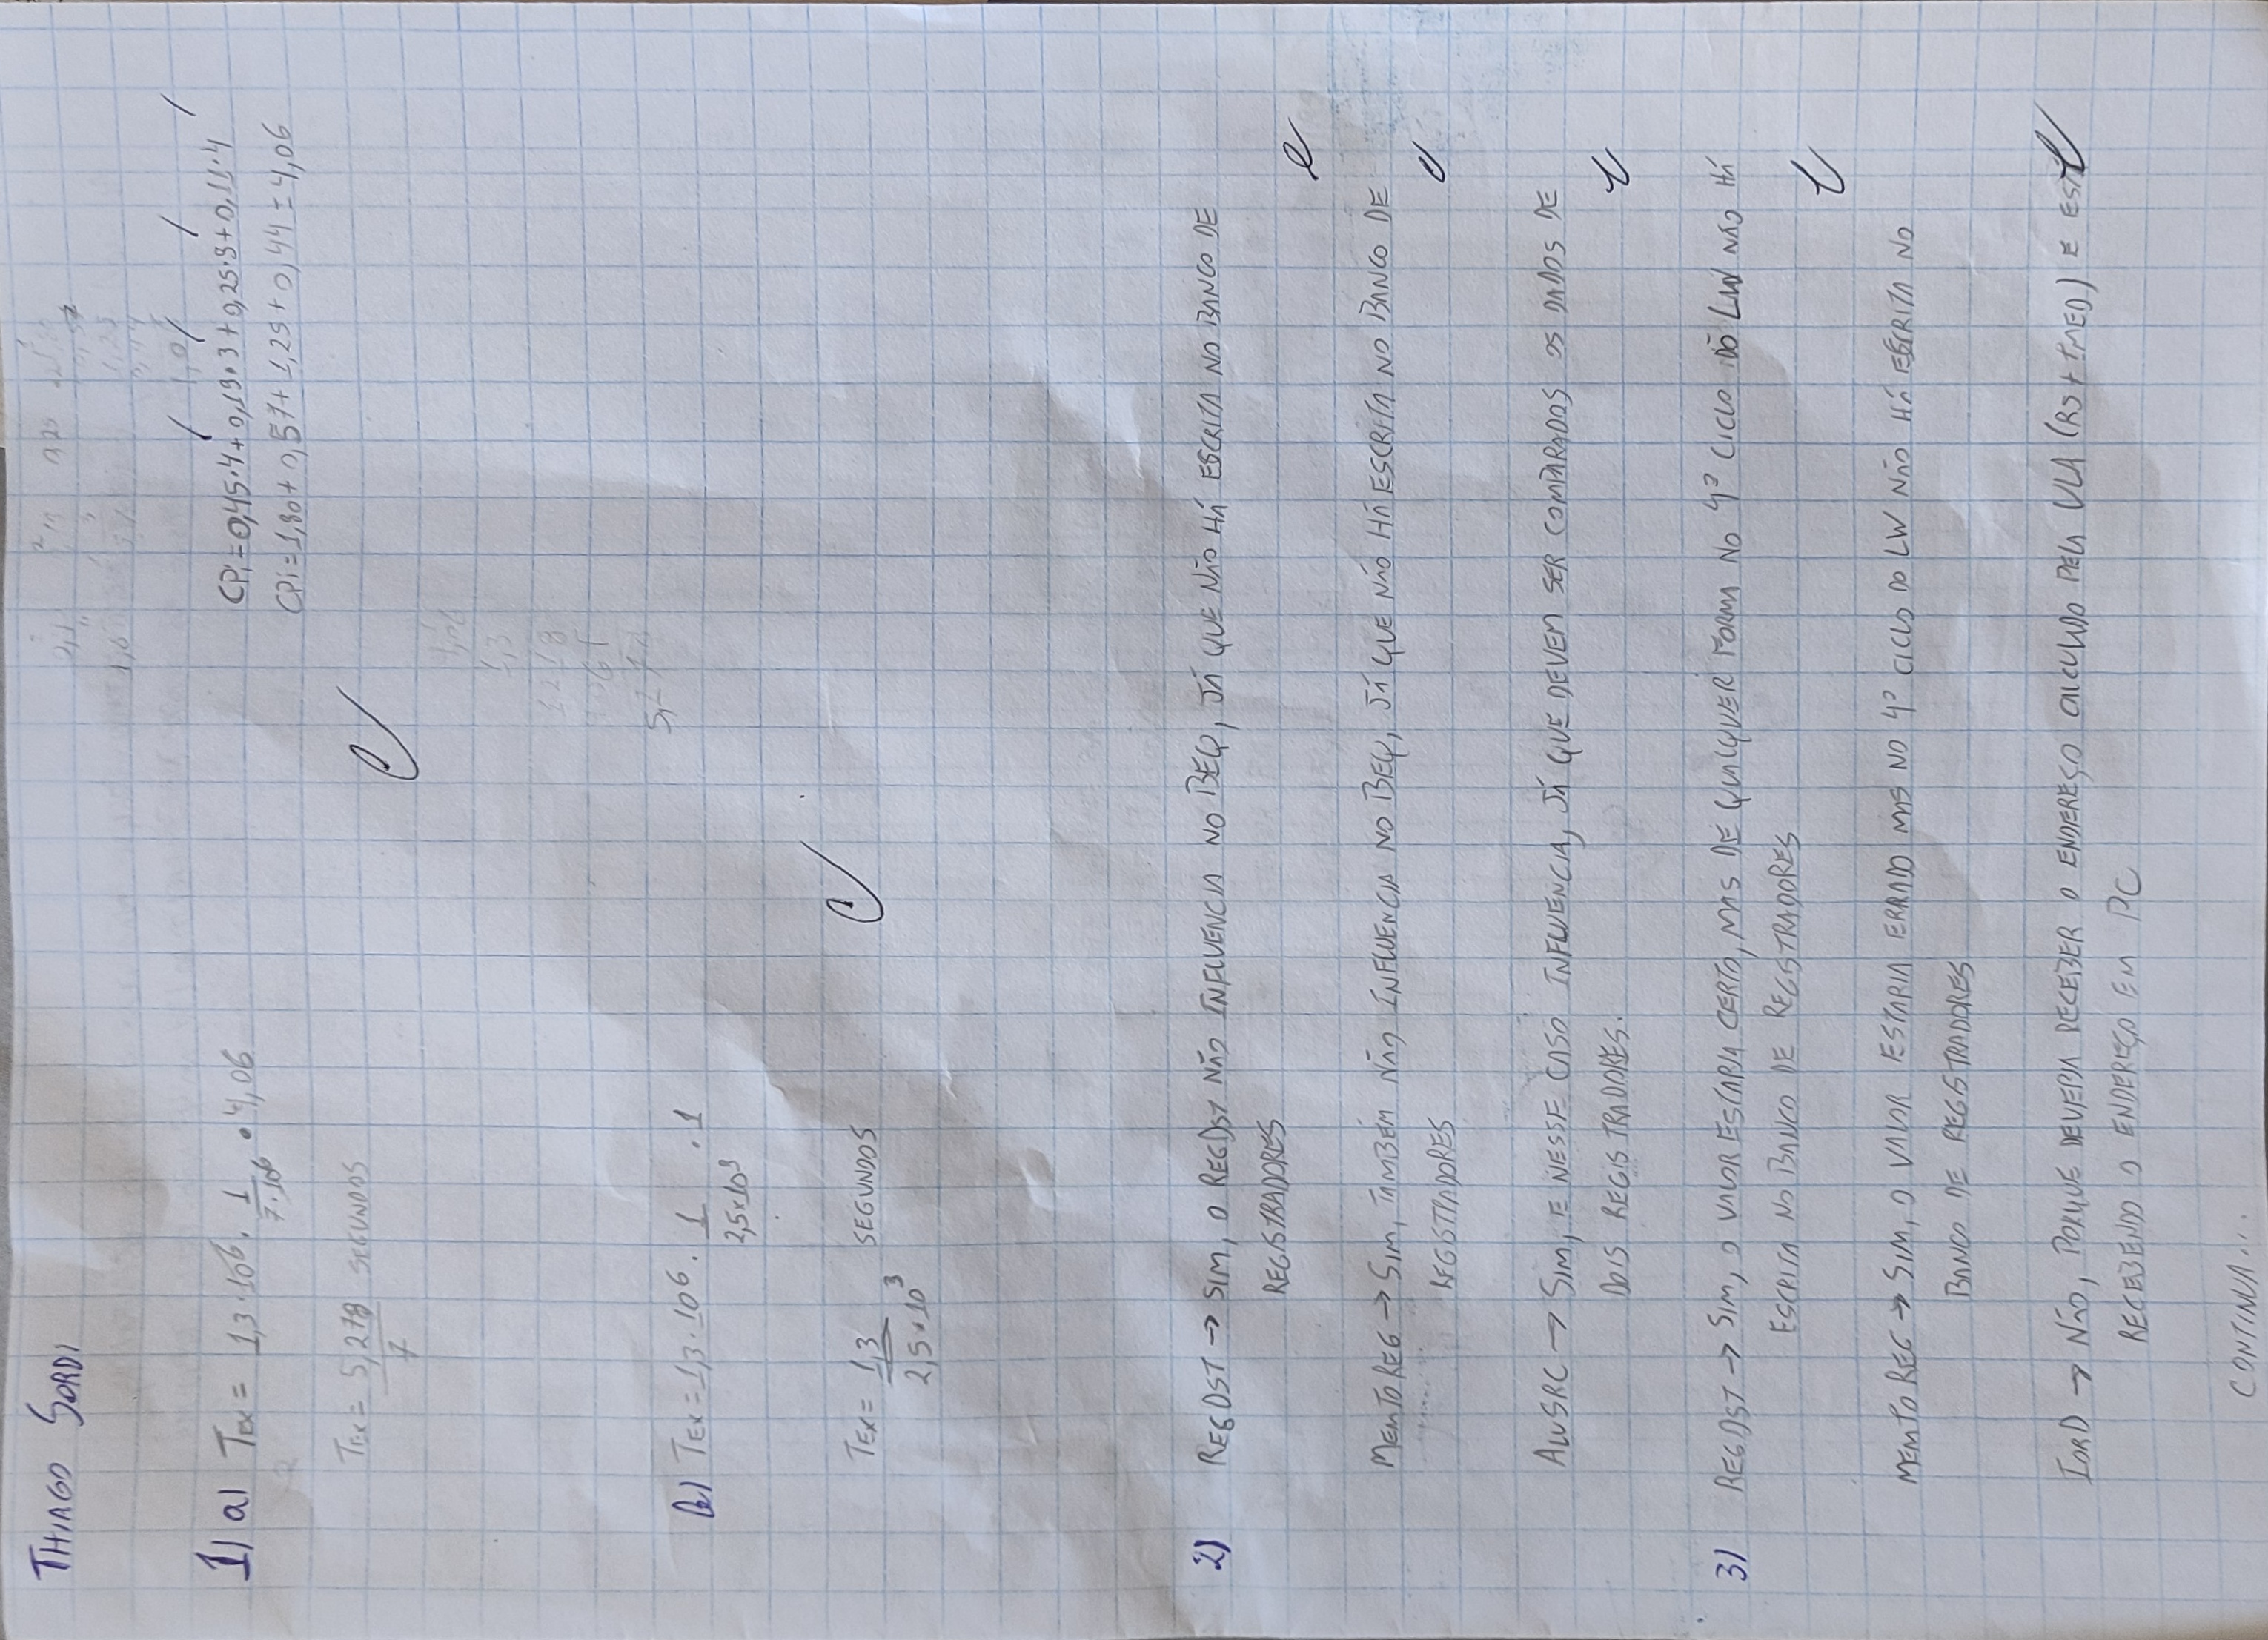 THIAGO SORDI
1) a) TEX = 1,3·10⁶ · 1/7·10⁶ · 4,06
CPi = 0,45·4 + 0,19·3 + 0,25·5 + 0,11·4
CPi = 1,80 + 0,57 + 1,25 + 0,44 = 4,06
TEX = 5,278/7 SEGUNDOS
4,06
1,3
1218
5,278
b) TEX = 1,3·10⁶ · 1/2,5×10³ · 1
TEX = 1,3/2,5·10³ SEGUNDOS
2) REGDST → SIM, O REGDST NÃO INFLUENCIA NO BEQ, JÁ QUE NÃO HÁ ESCRITA NO BANCO DE
REGISTRADORES
MEMTOREG → SIM, TAMBÉM NÃO INFLUENCIA NO BEQ, JÁ QUE NÃO HÁ ESCRITA NO BANCO DE
REGISTRADORES
ALUSRC → SIM, E NESSE CASO INFLUENCIA, JÁ QUE DEVEM SER COMPARADOS OS DADOS DE
DOIS REGISTRADORES.
3) REGDST → SIM, O VALOR ESTARIA CERTO, MAS DE QUALQUER FORMA NO 4º CICLO DO LW NÃO HÁ
ESCRITA NO BANCO DE REGISTRADORES
MEMTOREG → SIM, O VALOR ESTARIA ERRADO MAS NO 4º CICLO DO LW NÃO HÁ ESCRITA NO
BANCO DE REGISTRADORES
IORD → NÃO, PORQUE DEVERIA RECEBER O ENDEREÇO CALCULADO PELA ULA (RS + IMED) E ESTÁ
RECEBENDO O ENDEREÇO EM PC
CONTINUA...